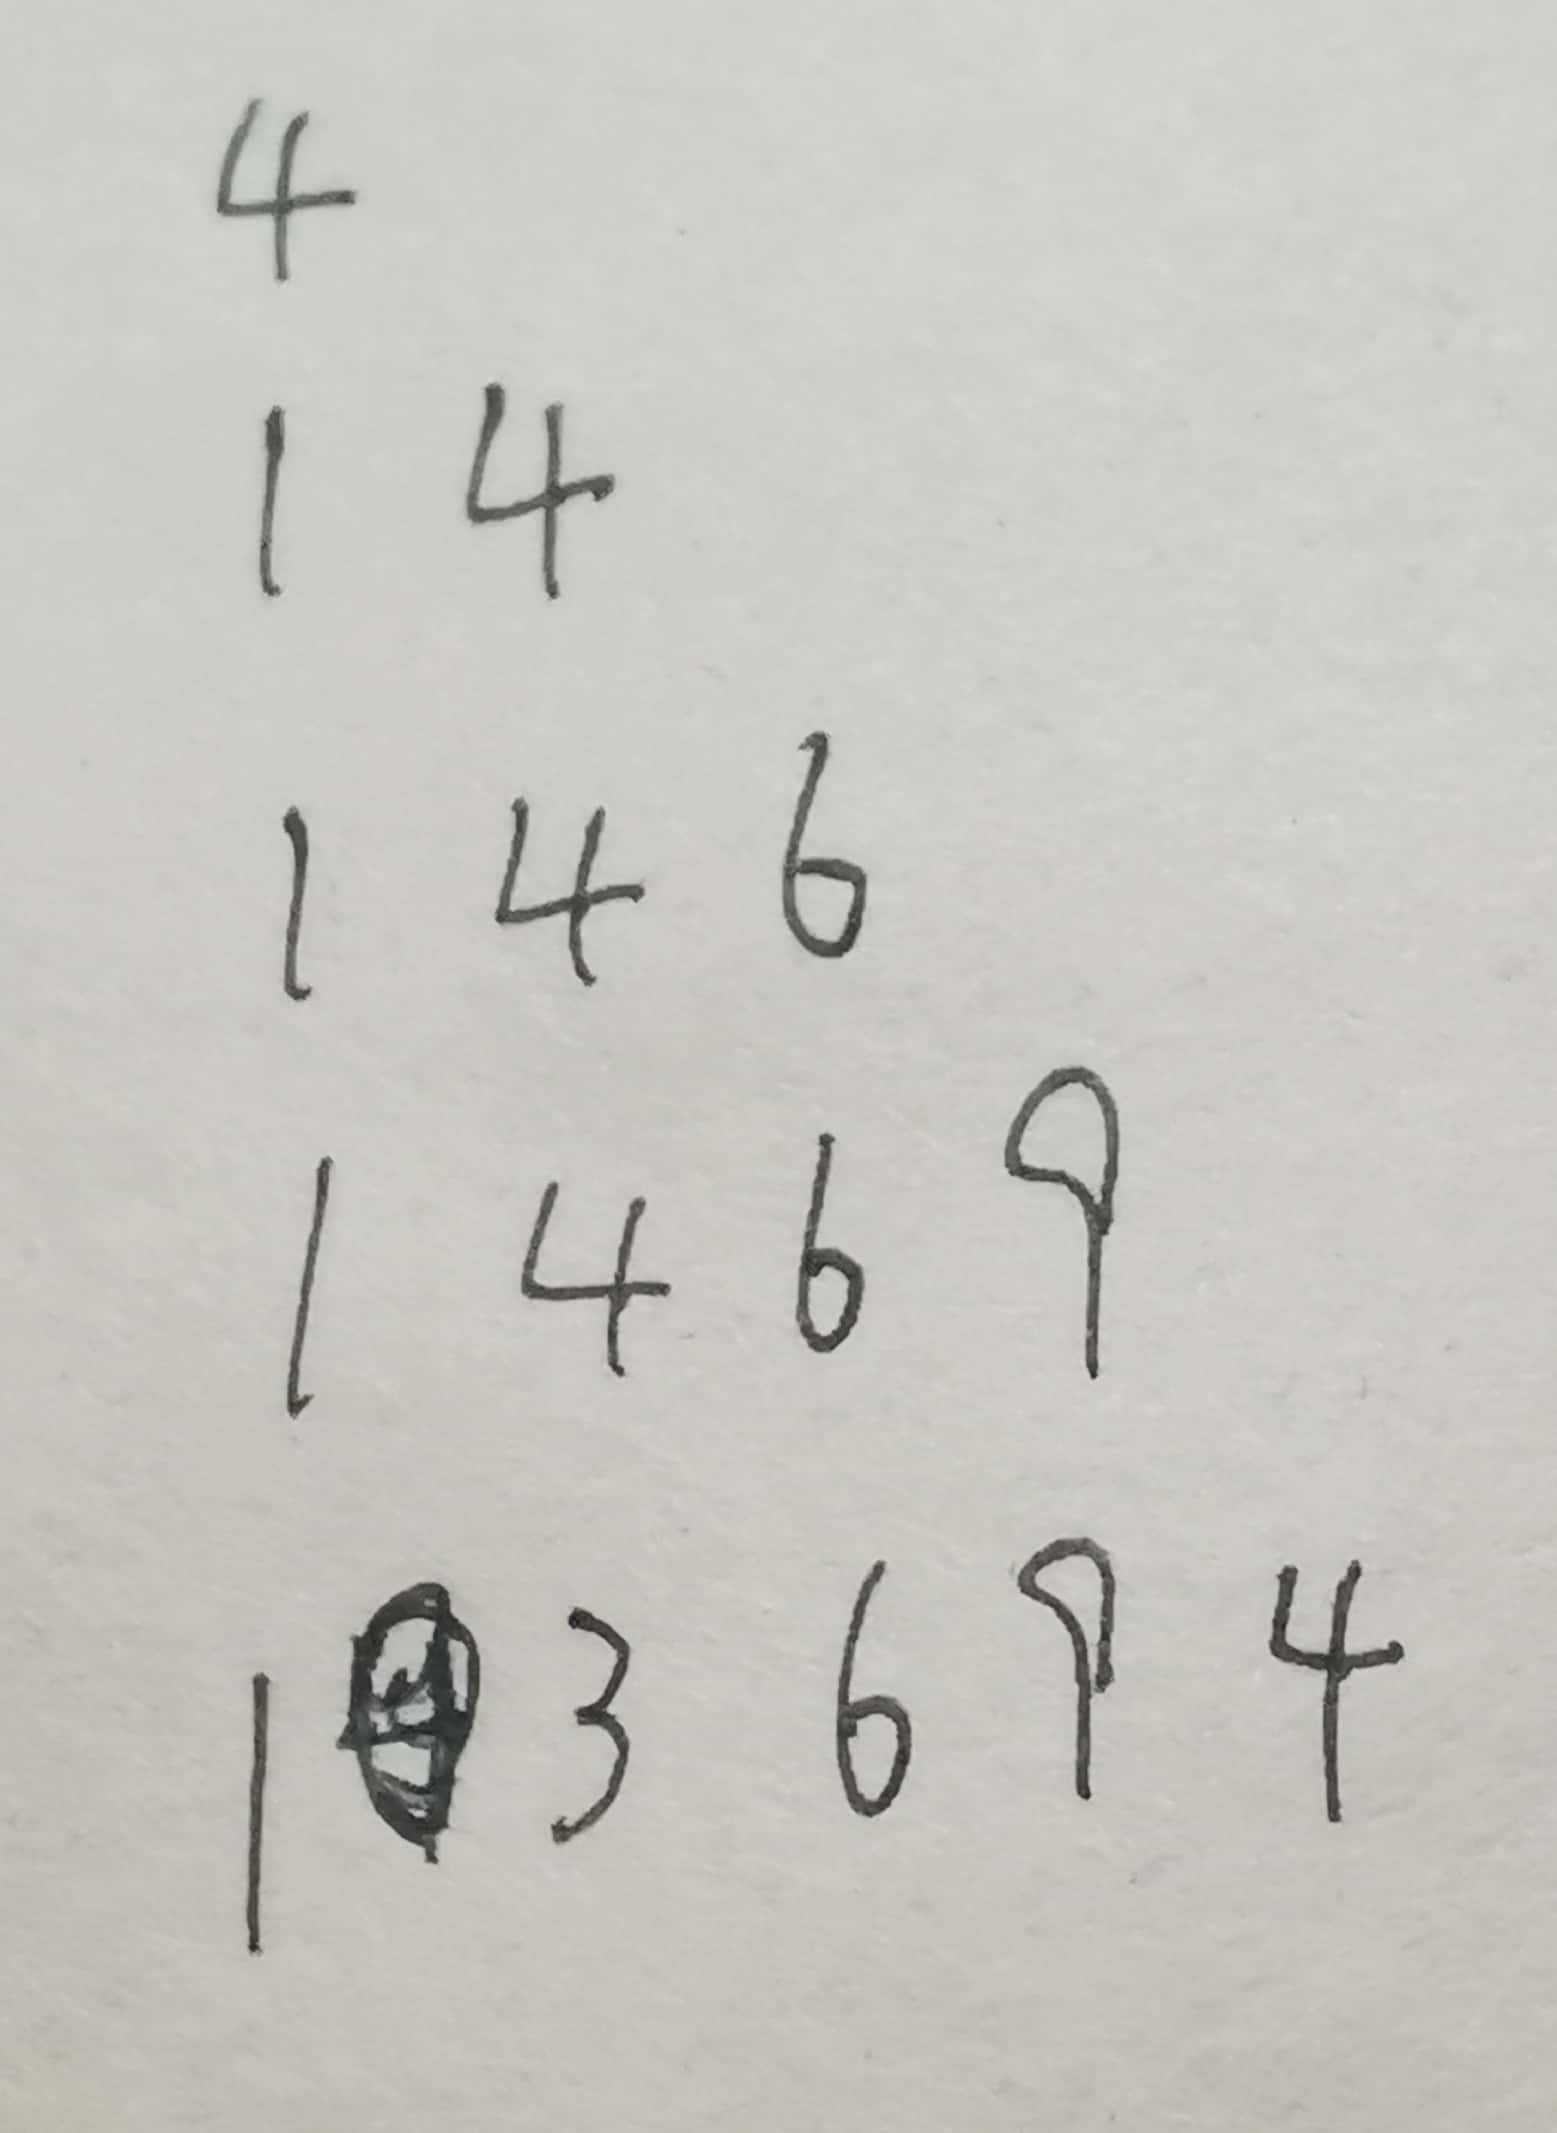 4
1 4
1 4 6
1 4 6 9
1 3 6 9 4